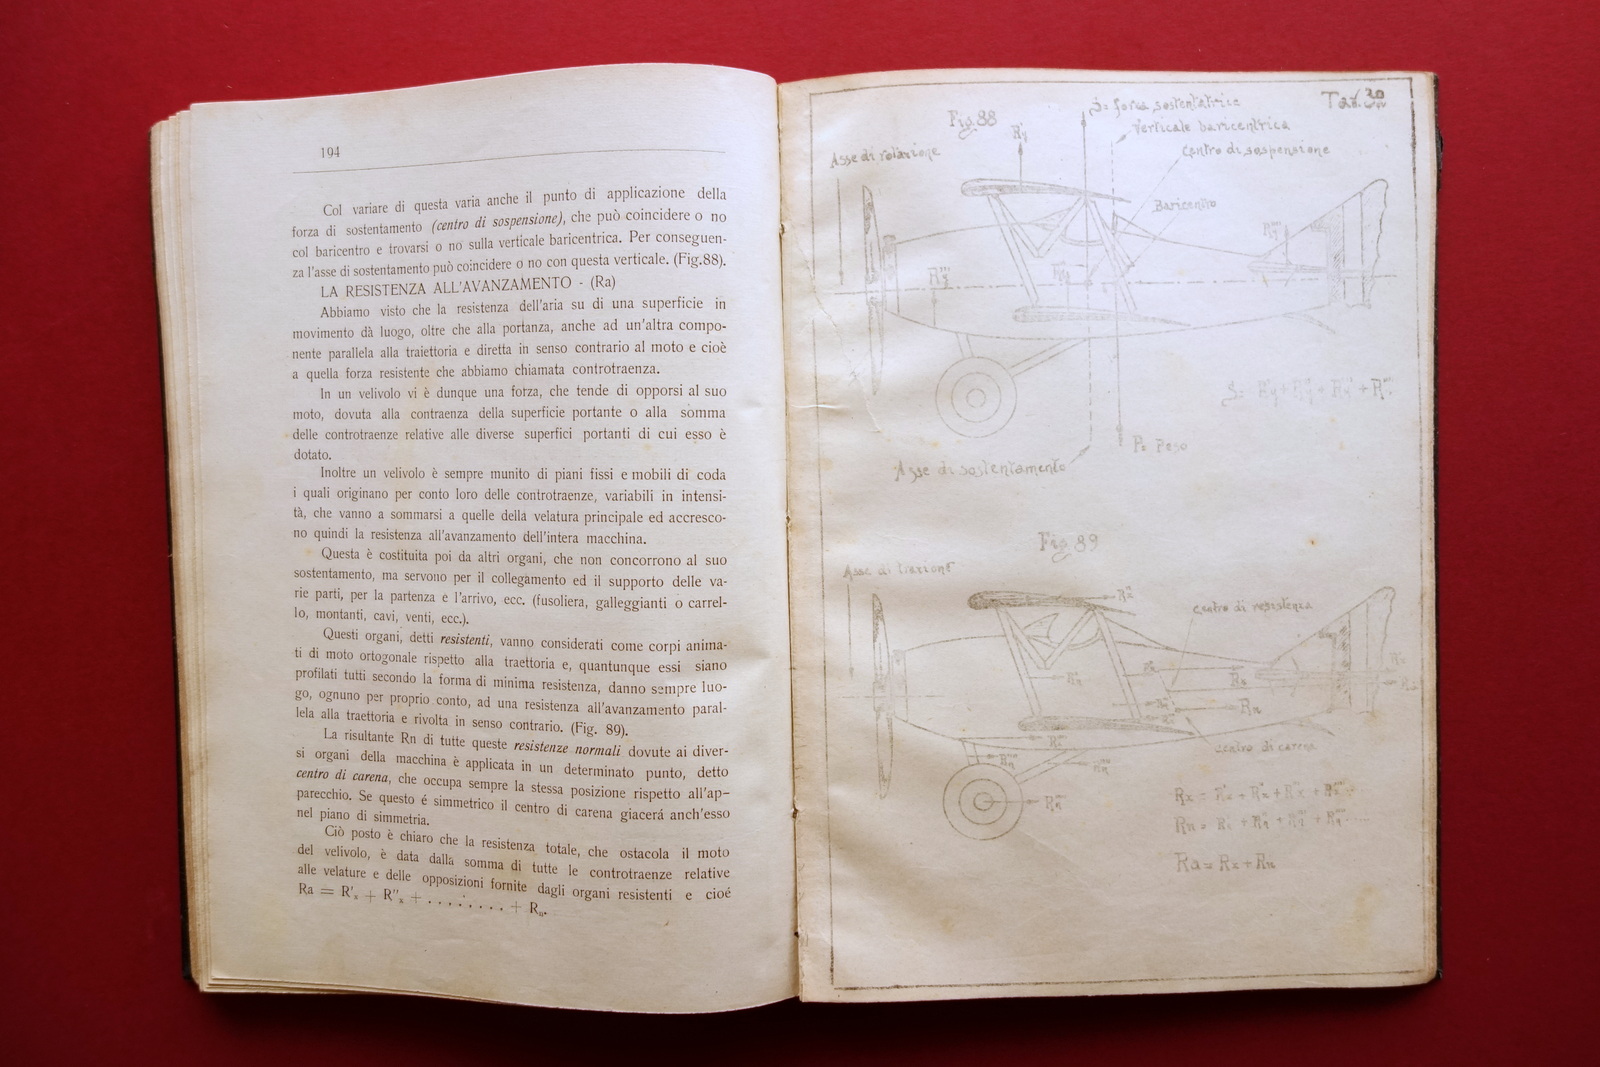 194
Col variare di questa varia anche il punto di applicazione della
forza di sostentamento (centro di sospensione), che può coincidere o no
col baricentro e trovarsi o no sulla verticale baricentrica. Per conseguen-
za l'asse di sostentamento può coincidere o no con questa verticale. (Fig.88).
LA RESISTENZA ALL'AVANZAMENTO - (Ra)
Abbiamo visto che la resistenza dell'aria su di una superficie in
movimento dà luogo, oltre che alla portanza, anche ad un'altra compo-
nente parallela alla traiettoria e diretta in senso contrario al moto e cioè
a quella forza resistente che abbiamo chiamata controtraenza.
In un velivolo vi è dunque una forza, che tende di opporsi al suo
moto, dovuta alla contraenza della superficie portante o alla somma
delle controtraenze relative alle diverse superfici portanti di cui esso è
dotato.
Inoltre un velivolo è sempre munito di piani fissi e mobili di coda
i quali originano per conto loro delle controtraenze, variabili in intensi-
tà, che vanno a sommarsi a quelle della velatura principale ed accresco-
no quindi la resistenza all'avanzamento dell'intera macchina.
Questa è costituita poi da altri organi, che non concorrono al suo
sostentamento, ma servono per il collegamento ed il supporto delle va-
rie parti, per la partenza e l'arrivo, ecc. (fusoliera, galleggianti o carrel-
lo, montanti, cavi, venti, ecc.).
Questi organi, detti resistenti, vanno considerati come corpi anima-
ti di moto ortogonale rispetto alla traettoria e, quantunque essi siano
profilati tutti secondo la forma di minima resistenza, danno sempre luo-
go, ognuno per proprio conto, ad una resistenza all'avanzamento paral-
lela alla traettoria e rivolta in senso contrario. (Fig. 89).
La risultante Rn di tutte queste resistenze normali dovute ai diver-
si organi della macchina è applicata in un determinato punto, detto
centro di carena, che occupa sempre la stessa posizione rispetto all'ap-
parecchio. Se questo é simmetrico il centro di carena giacerá anch'esso
nel piano di simmetria.
Ciò posto è chiaro che la resistenza totale, che ostacola il moto
del velivolo, è data dalla somma di tutte le controtraenze relative
alle velature e delle opposizioni fornite dagli organi resistenti e cioé
Ra = R'ₓ + R''ₓ + . . . . . . . . + Rₙ.
Tav. 30
Fig. 88
S = forza sostentatrice
Verticale baricentrica
Centro di sospensione
Asse di rotazione
Baricentro
P = Peso
Asse di sostentamento
Fig 89
Asse di trazione
Centro di resistenza
Rn
centro di carena
Ra = Rx + Rn